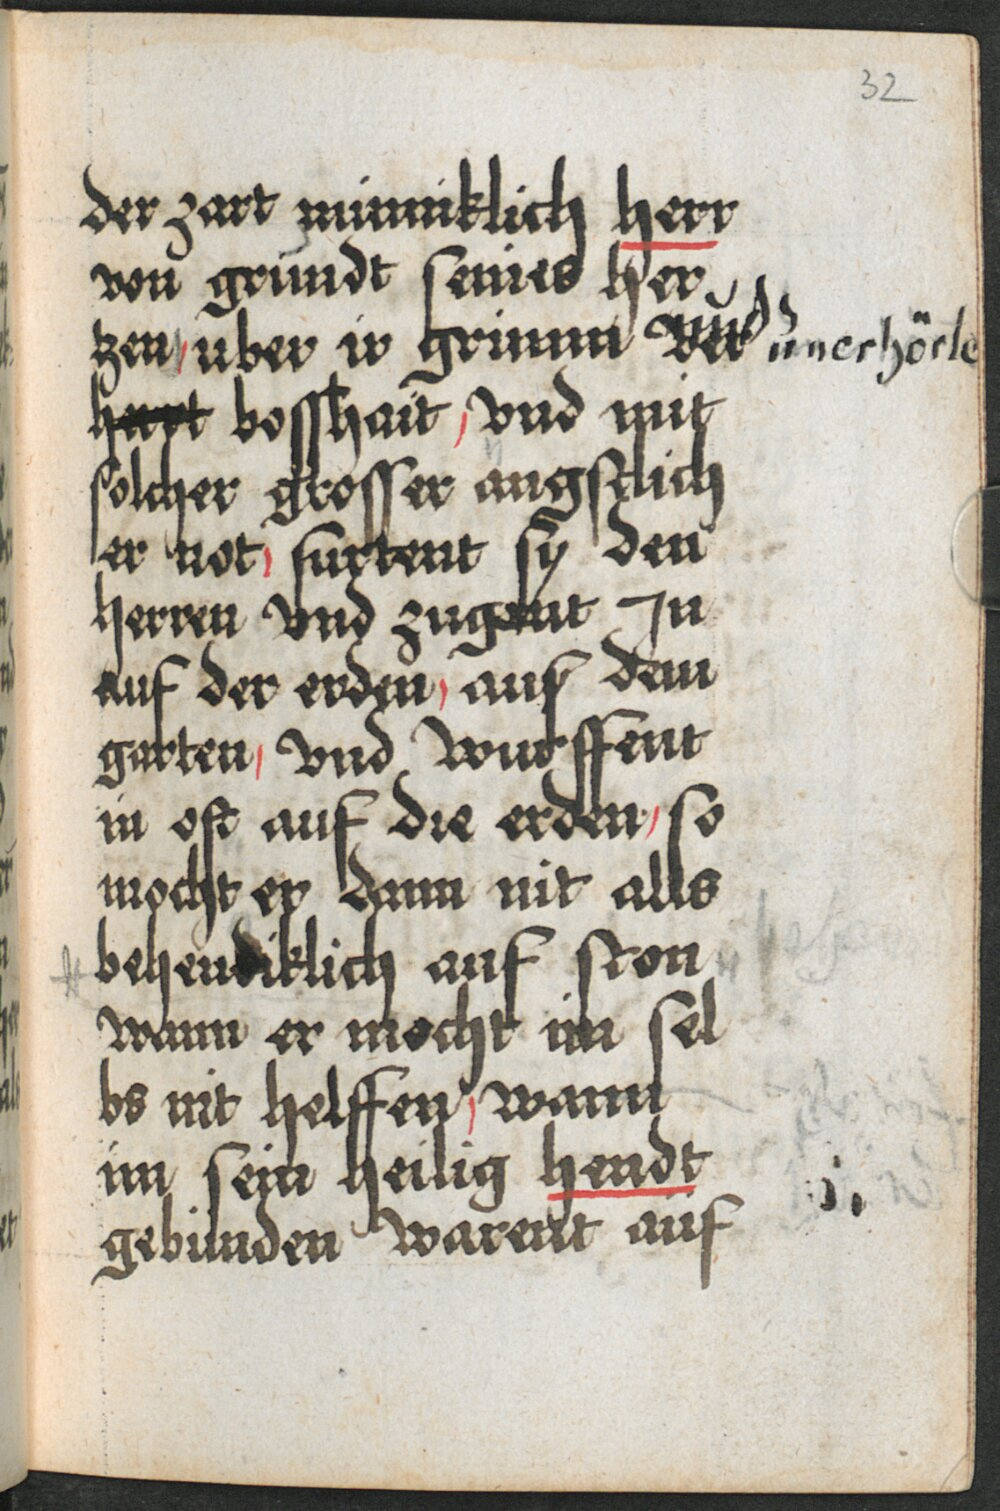 32
der zart minniklich herr
von grundt seines her
tzen, uber ir grimm vnd unerhörte
bosshait, vnd mit
solcher grosser angstlich
er not, furtent sy den
herren vnd zugent In
auf der erden, aus dem
garten, vnd wurffent
in oft auf die erden, so
mocht er dann nit alls
behendiklich auf ston
wann er mocht im sel
bs nit helffen, wann
im sein heilig hendt
gebunden warent auf